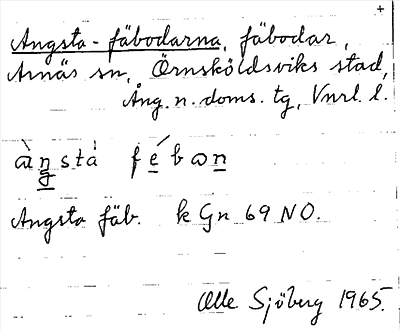 +
Angsta-fäbodarna, fäbodar,
Arnäs sn, Örnsköldsviks stad,
Ång. n. doms. tg, Vnrl. l.
àŋstá fébωn
Angsta fäb. k Gn 69 NO.
Olle Sjöberg 1965.